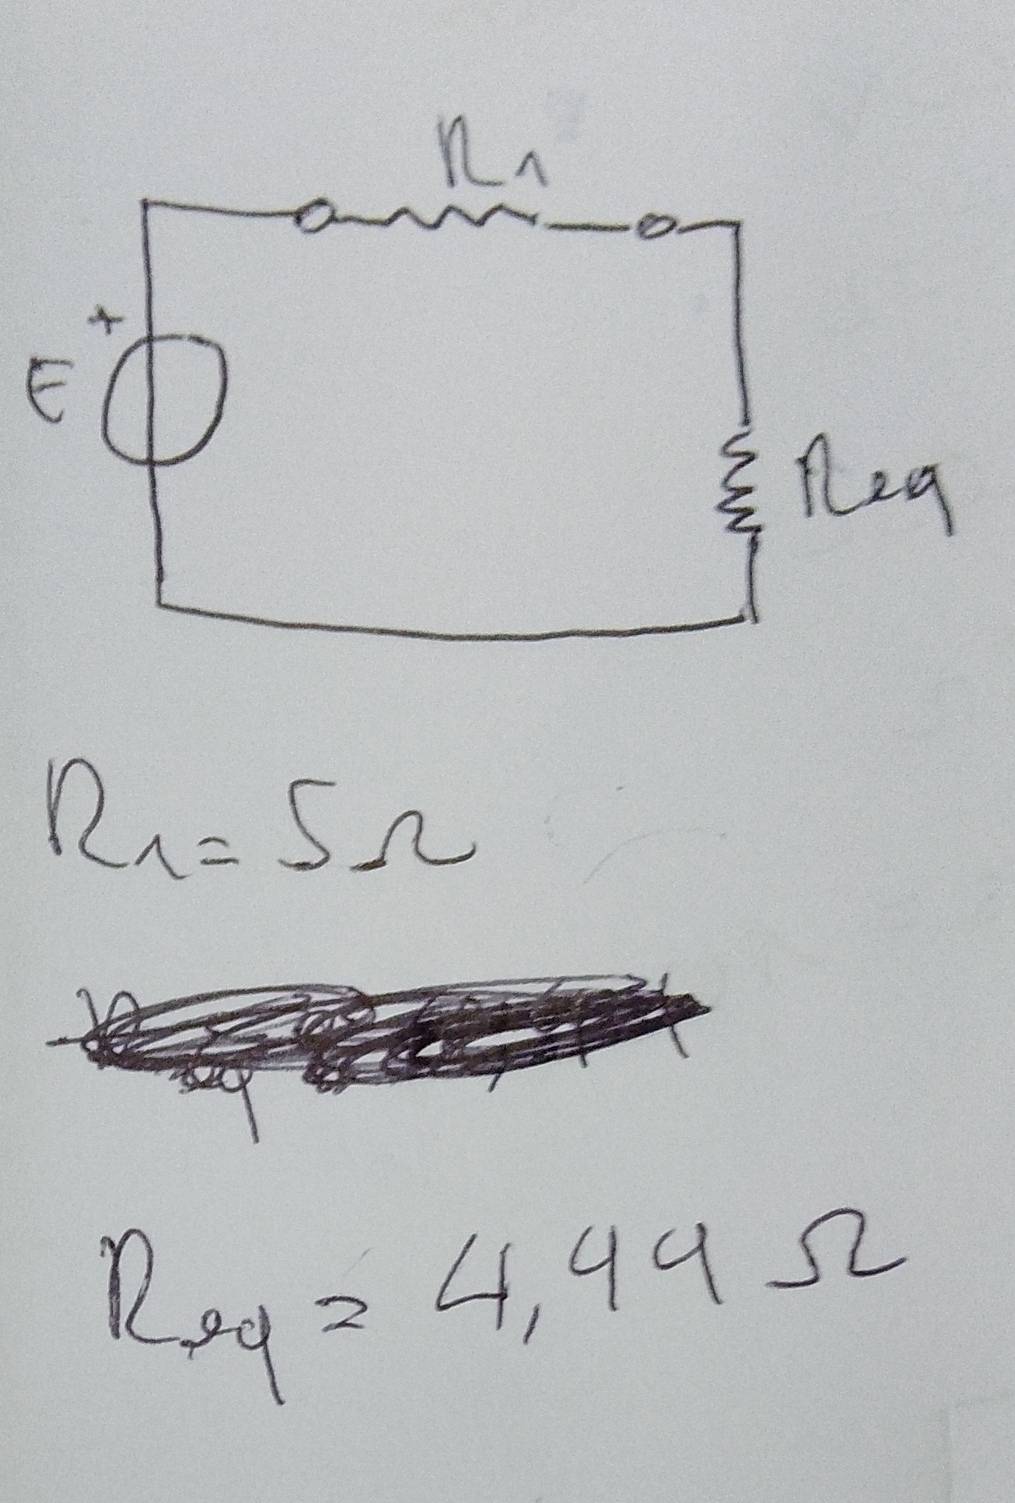 R1
+
E
Req
R1 = 5 Ω
Req = 4,99 Ω